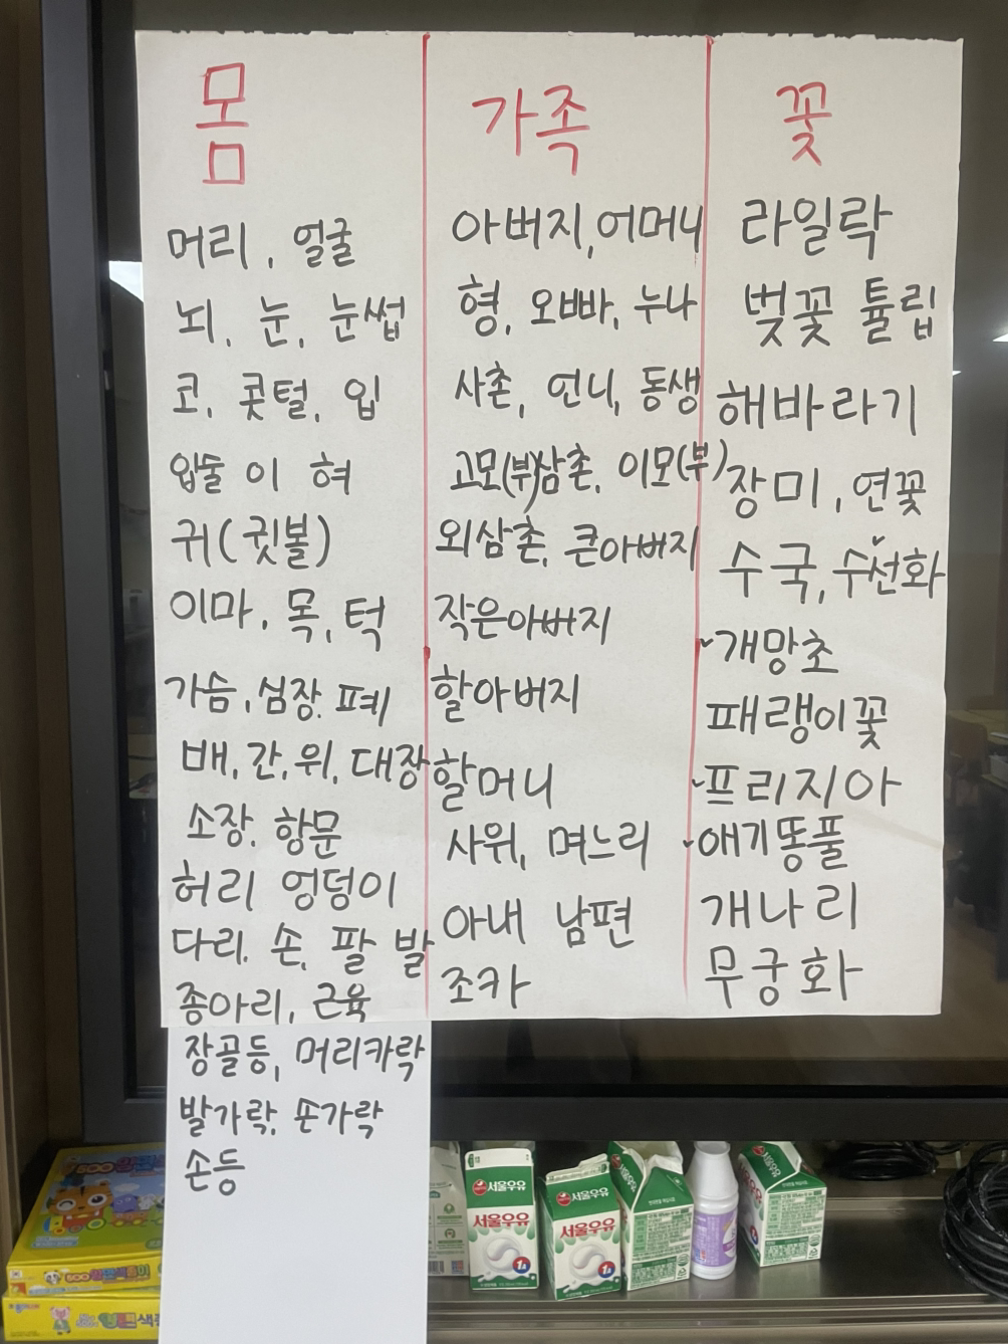 몸
머리, 얼굴
뇌, 눈, 눈썹
코, 콧털, 입
입술 이 혀
귀(귓볼)
이마, 목, 턱
가슴, 심장. 폐
배, 간, 위, 대장
소장. 항문
허리 엉덩이
다리. 손, 팔 발
종아리, 근육
장골등, 머리카락
발가락, 손가락
손등
가족
아버지, 어머니
형, 오빠, 누나
사촌, 언니, 동생
고모(부)삼촌, 이모(부)
외삼촌, 큰아버지
작은아버지
할아버지
할머니
사위, 며느리
아내 남편
조카
꽃
라일락
벚꽃 튤립
해바라기
장미, 연꽃
수국, 수선화
개망초
패랭이꽃
프리지아
애기똥풀
개나리
무궁화
서울우유
서울우유
1A
서울우유
서울우유
1A